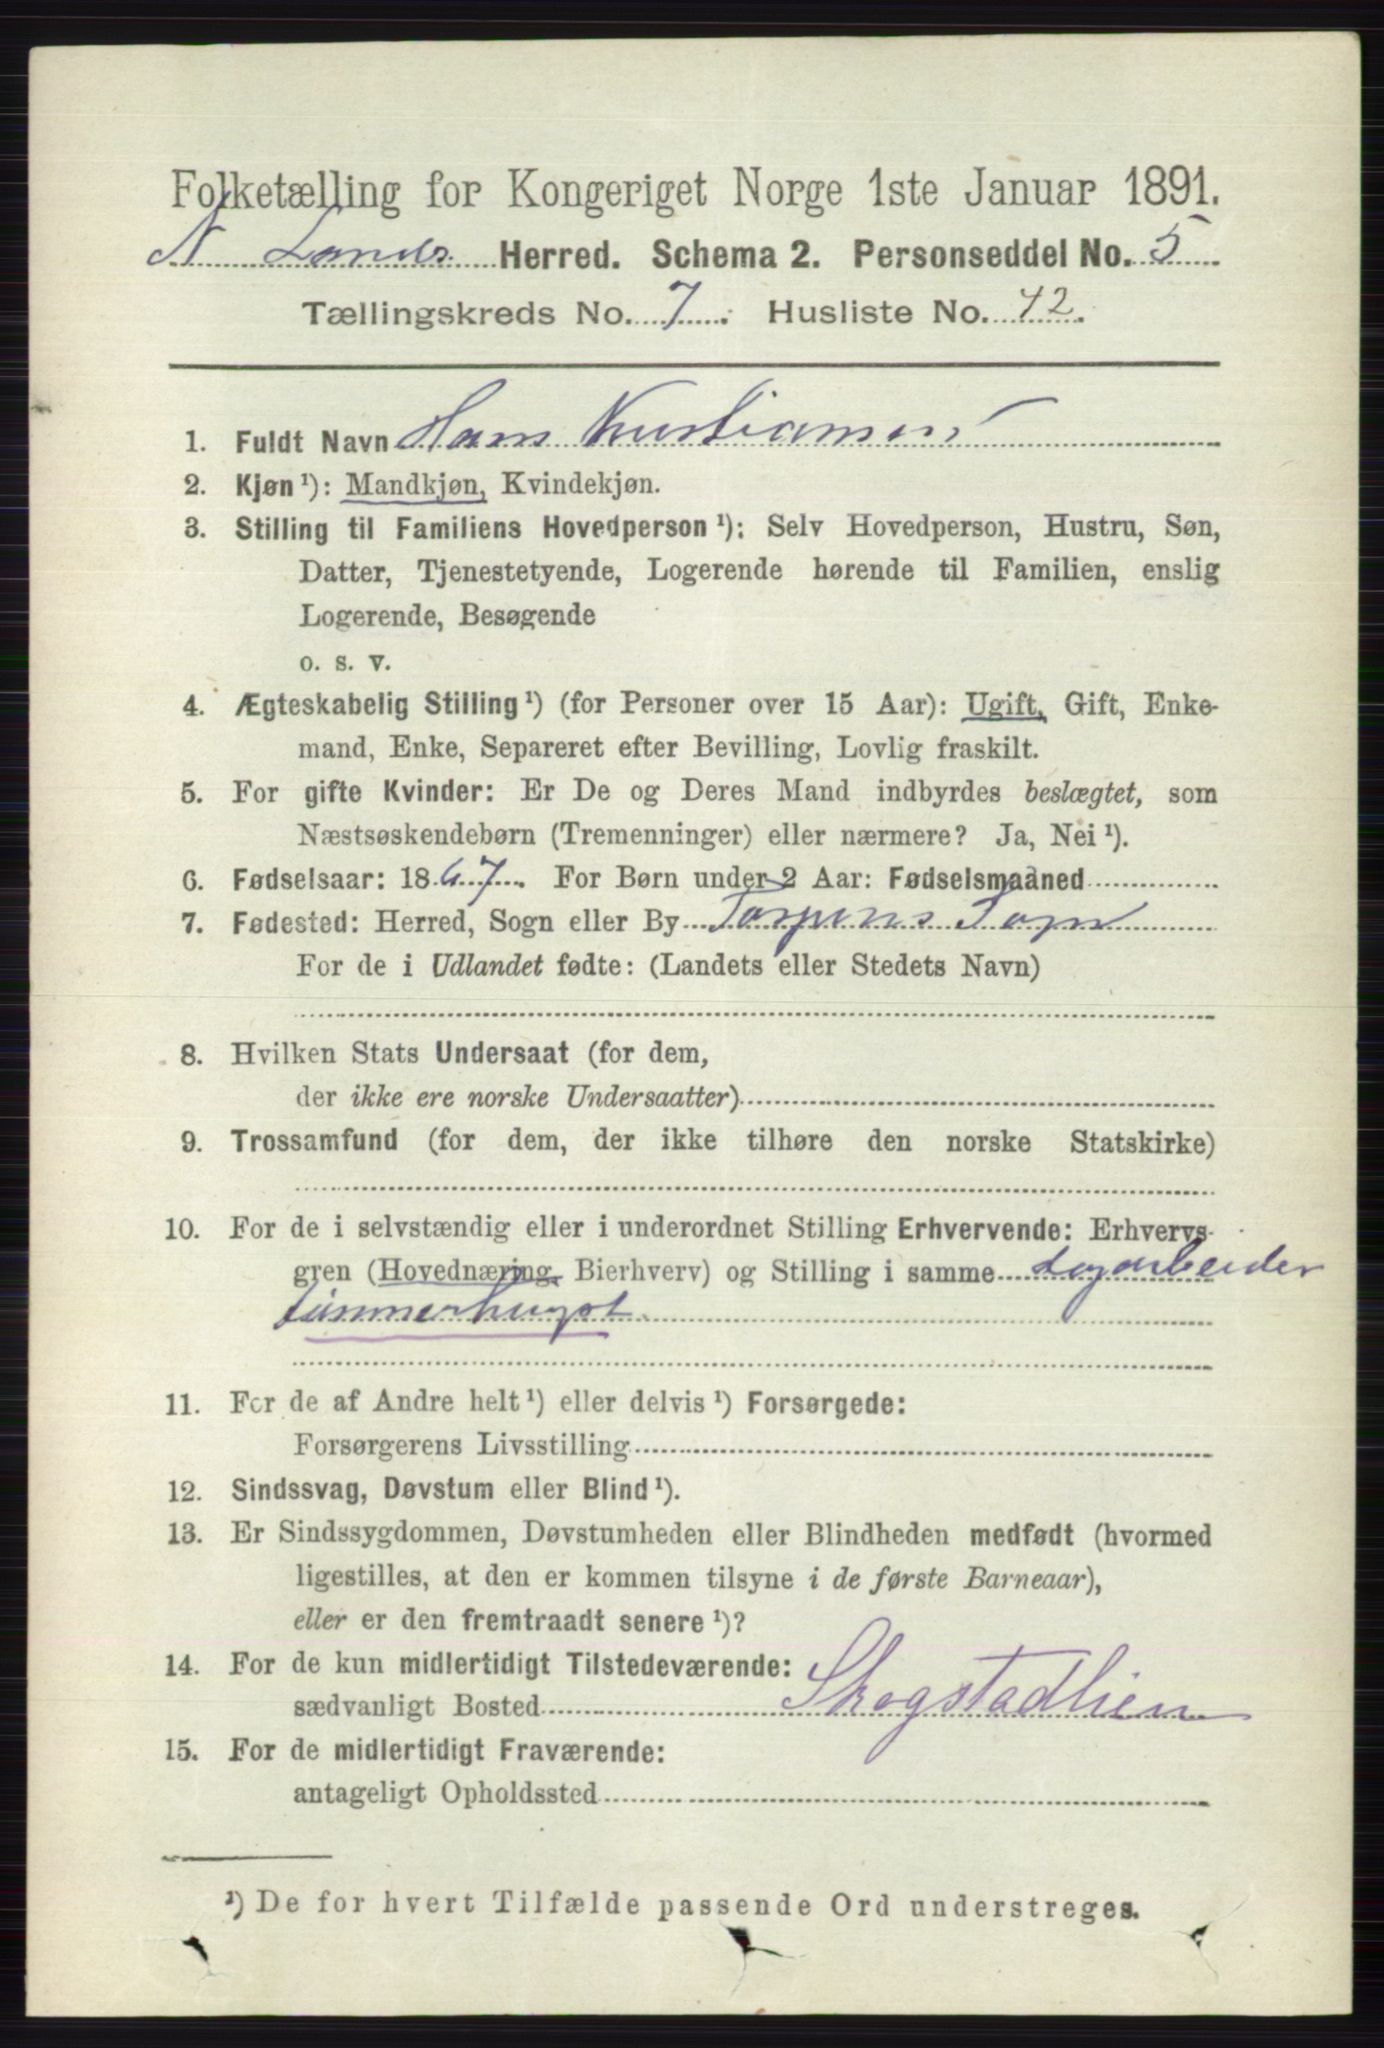 Folketælling for Kongeriget Norge 1ste Januar 1891.
N Lands Herred. Schema 2. Personseddel No. 5
Tællingskreds No. 7. Husliste No. 42.
1. Fuldt Navn Hans Kristiansen
2. Kjøn ¹): Mandkjøn, Kvindekjøn.
3. Stilling til Familiens Hovedperson ¹): Selv Hovedperson, Hustru, Søn,
Datter, Tjenestetyende, Logerende hørende til Familien, enslig
Logerende, Besøgende
o. s. v.
4. Ægteskabelig Stilling ¹) (for Personer over 15 Aar): Ugift, Gift, Enke-
mand, Enke, Separeret efter Bevilling, Lovlig fraskilt.
5. For gifte Kvinder: Er De og Deres Mand indbyrdes beslægtet, som
Næstsøskendebørn (Tremenninger) eller nærmere? Ja, Nei ¹).
6. Fødselsaar: 1867. For Børn under 2 Aar: Fødselsmaaned
7. Fødested: Herred, Sogn eller By Torpens Sogn
For de i Udlandet fødte: (Landets eller Stedets Navn)
8. Hvilken Stats Undersaat (for dem,
der ikke ere norske Undersaatter)
9. Trossamfund (for dem, der ikke tilhøre den norske Statskirke)
10. For de i selvstændig eller i underordnet Stilling Erhvervende: Erhvervs-
gren (Hovednæring, Bierhverv) og Stilling i samme Lagarbeider
tømmerhugst.
11. For de af Andre helt ¹) eller delvis ¹) Forsørgede:
Forsørgerens Livsstilling
12. Sindssvag, Døvstum eller Blind ¹).
13. Er Sindssygdommen, Døvstumheden eller Blindheden medfødt (hvormed
ligestilles, at den er kommen tilsyne i de første Barneaar),
eller er den fremtraadt senere ¹)?
14. For de kun midlertidigt Tilstedeværende:
sædvanligt Bosted Skogstadlien
15. For de midlertidigt Fraværende:
antageligt Opholdssted
¹) De for hvert Tilfælde passende Ord understreges.